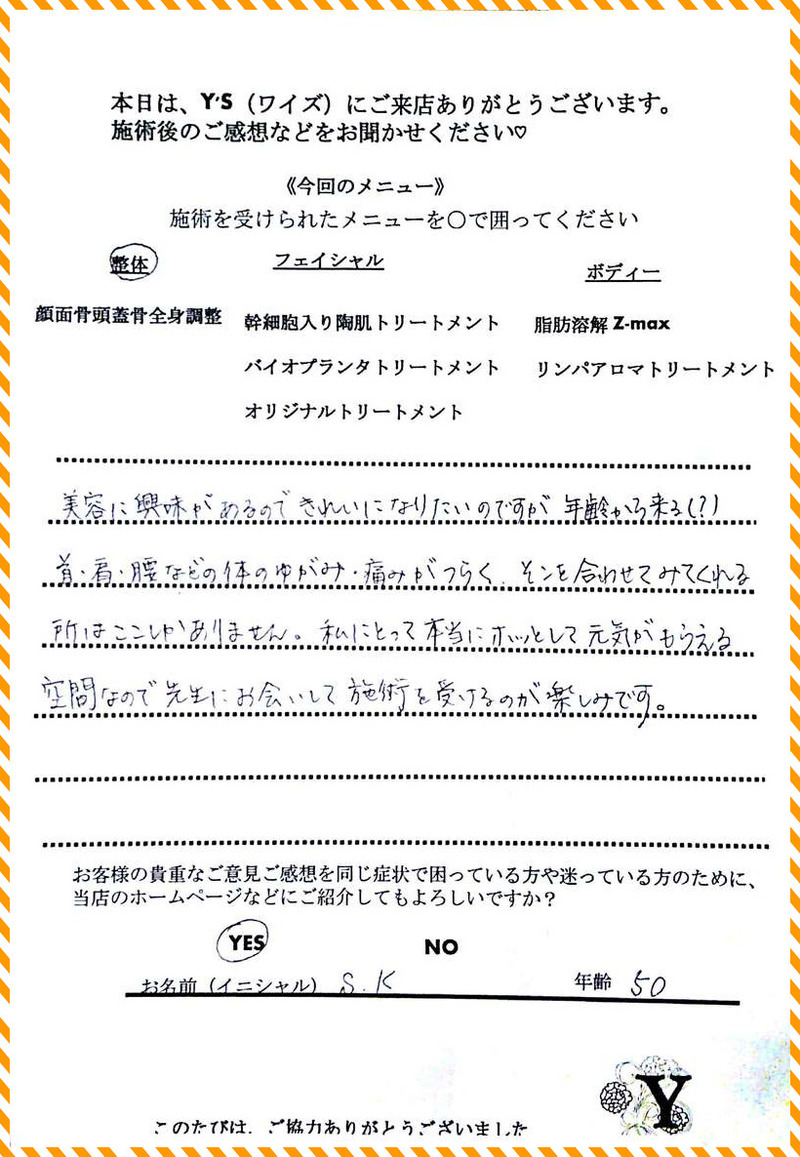 本日は、Y'S（ワイズ）にご来店ありがとうございます。
施術後のご感想などをお聞かせください♡
《今回のメニュー》
施術を受けられたメニューを〇で囲ってください
整体
フェイシャル
ボディー
顔面骨頭蓋骨全身調整
幹細胞入り陶肌トリートメント
脂肪溶解 Z-max
バイオプランタトリートメント
リンパアロマトリートメント
オリジナルトリートメント
美容に興味があるので きれいになりたいのですが 年齢から来る(?)
首・肩・腰などの体のゆがみ・痛みがつらく、そこを合わせてみてくれる
所はここしかありません。私にとって本当にホッとして元気がもらえる
空間なので先生にお会いして施術を受けるのが楽しみです。
お客様の貴重なご意見ご感想を同じ症状で困っている方や迷っている方のために、
当店のホームページなどにご紹介してもよろしいですか？
YES
NO
お名前（イニシャル） S.K 年齢 50
Y
このたびは、ご協力ありがとうございました